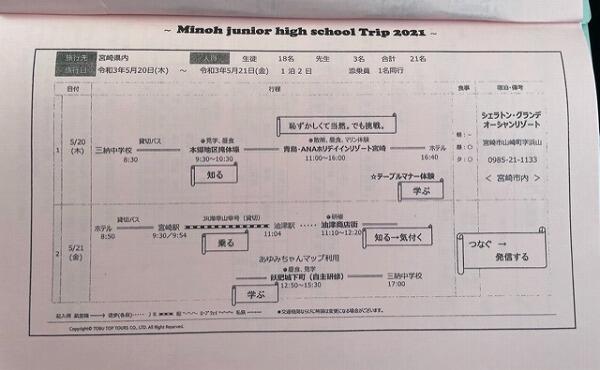 ~ Minoh junior high school Trip 2021 ~
旅行先 宮崎県内 人員 生徒 18名 先生 3名 合計 21名
旅行日 令和3年5月20日(木) ～ 令和3年5月21日(金) 1泊2日 添乗員 1名同行
日付 行程 食事 宿泊・備考
恥ずかしくて当然。でも挑戦。
シェラトン・グランデ
オーシャンリゾート
1 5/20
(木)
貸切バス ●見学、昼食 ●散策、昼食、マリン体験
三納中学校 本郷地区掩体壕 青島・ANAホリデイインリゾート宮崎 ホテル
8:30 9:30～10:30 11:00～16:00 16:40
朝:－
昼:○
夕:○
宮崎市山崎町字浜山
0985-21-1133
＜ 宮崎市内 ＞
知る
☆テーブルマナー体験
学ぶ
2 5/21
(金)
貸切バス JR海幸山幸号（貸切） ●研修
ホテル 宮崎駅 油津駅 ‥‥ 油津商店街
8:50 9:30／9:54 11:04 11:10～12:20
乗る
知る→気付く
つなぐ →
発信する
あゆみちゃんマップ利用
●昼食、見学
飫肥城下町（自主研修） 三納中学校
12:50～15:30 17:00
学ぶ
Copyright© TOBU TOP TOURS CO., LTD. All Right Reserved.